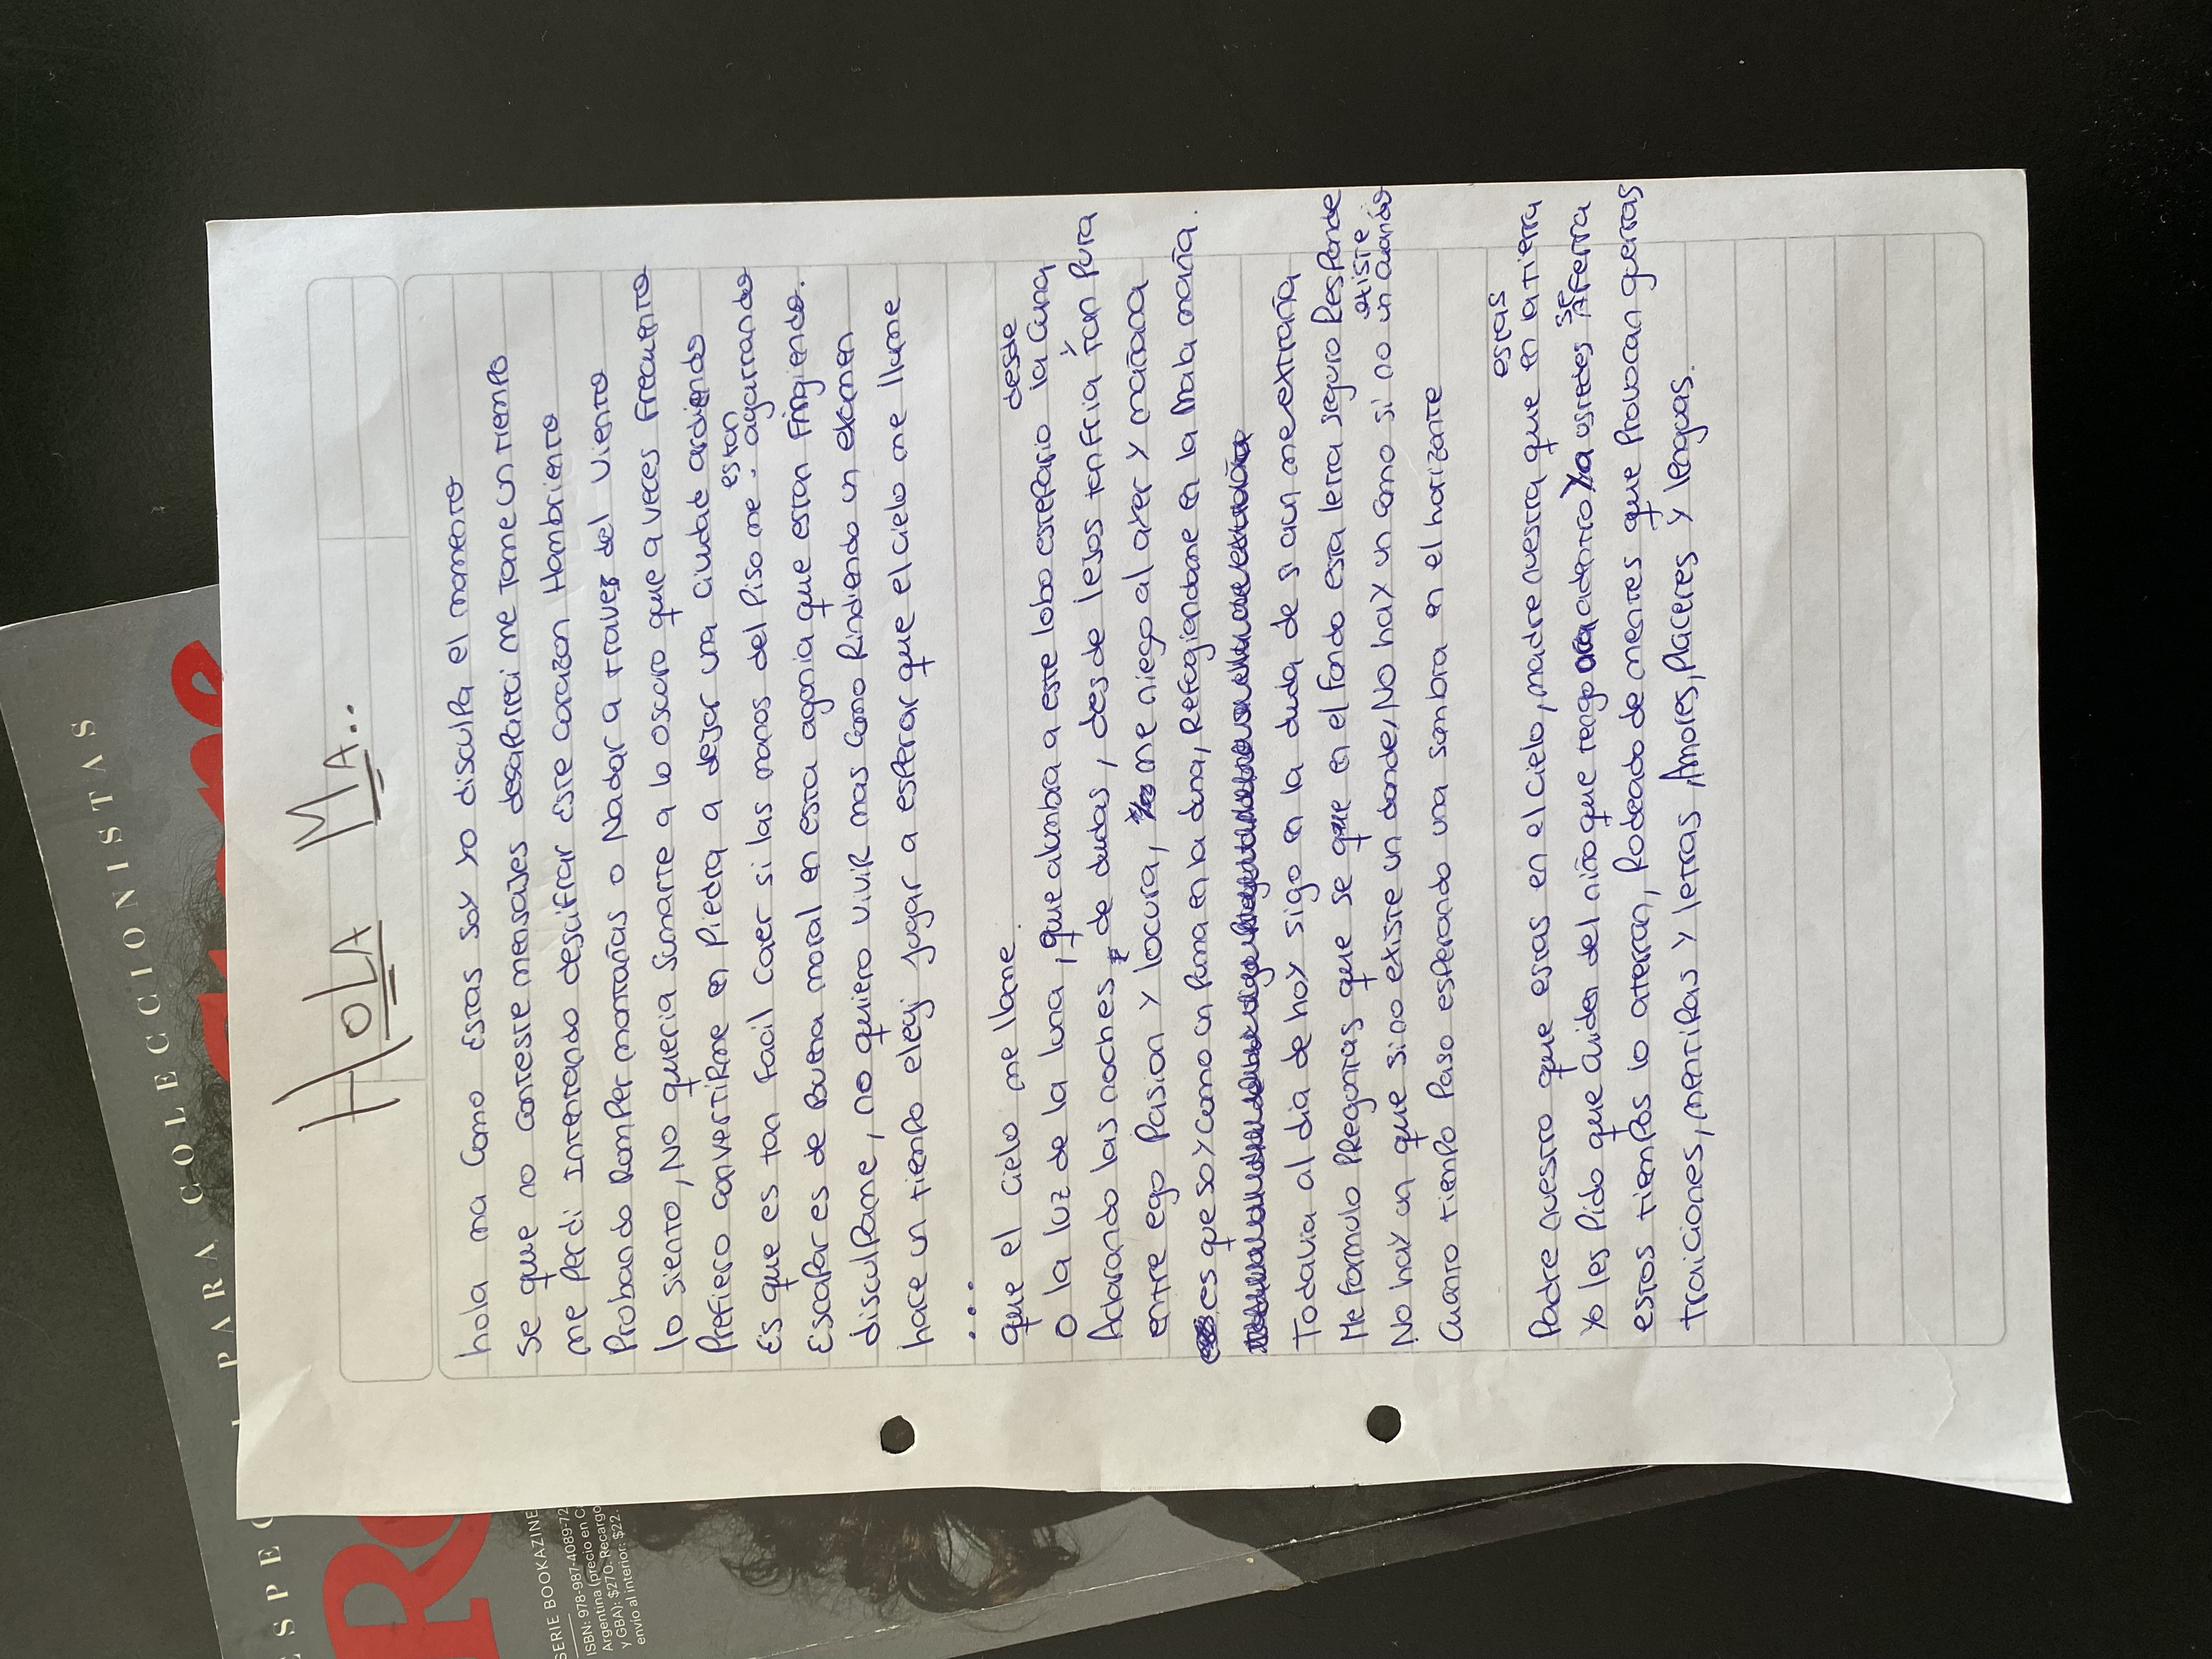 HOLA MA..
hola ma Como Estas soy yo disculpa el momento
se que no conteste mensajes desapareci me Tome un tiempo
me Perdi Intentando descifrar Este corazon Hambriento
Probando Romper montañas o Nadar a travez del viento
lo siento, No queria Sumarte a lo oscuro que a veces Frecuento
Prefiero convertirme en Piedra a dejar una ciudad ardiendo
Es que es tan facil caer si las manos del Piso me estan agarrando
Escapar es de Buena moral en esta agonia que estan Fingiendo.
disculpame, no quiero vivir mas como Rindiendo un examen
hace un tiempo elegi jugar a esperar que el cielo me llame
...
que el cielo me llame
O la luz de la luna, que alumbra a este lobo estepario desde la cuna
Aclarando las noches de dudas, desde lejos tan fria y tan Pura
entre ego Pasion y locura, me niego al ayer y mañana
es que soy como un Puma en la duna, Refugiandome en la Mala maña.
Todavia al dia de hoy sigo en la duda de si aun me extraña
Me formulo Preguntas que se que en el fondo esta letra seguro Responde
No hay un que si no existe un donde, No hay un como si no existe un cuando
Cuanto tiempo Paso esperando una sombra en el horizonte
Padre nuestro que estas en el cielo, madre nuestra que estas en la tierra
Yo les Pido que cuiden del niño que tengo adentro ya ustedes se Aferra
estos tiempos lo aterran, Rodeado de mentes que Provocan guerras
Traiciones, mentiras y letras, Amores, Placeres y lenguas.
PARA COLECCIONISTAS
ESPEC
Ro
SERIE BOOKAZINE
ISBN: 978-987-4089-72
Argentina (precio en C
y GBA): $270. Recargo
envío al interior: $22.